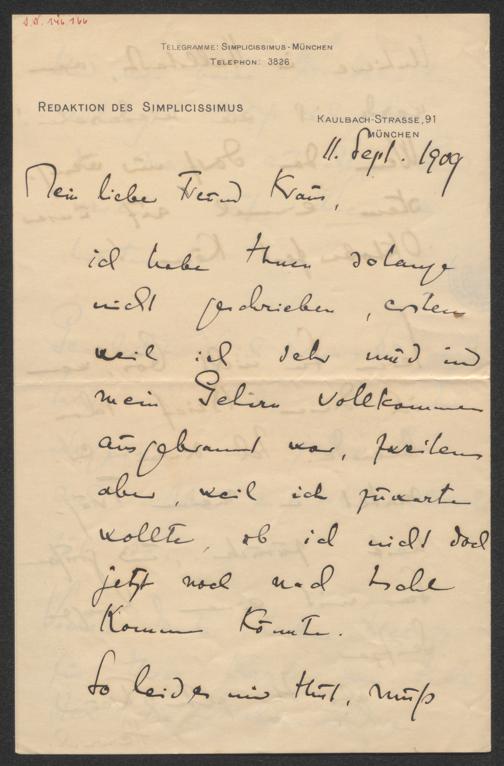 I.N. 146.166
TELEGRAMME: SIMPLICISSIMUS-MÜNCHEN
TELEPHON: 3826
REDAKTION DES SIMPLICISSIMUS
KAULBACH-STRASSE, 91
MÜNCHEN
11. Sept. 1909
Mein lieber Freund Kraus,
ich habe Ihnen solange
nicht geschrieben, erstens
weil ich sehr müd und
mein Gehirn vollkommen
ausgebrannt war, zweitens
aber, weil ich zuwarten
wollte, ob ich nicht doch
jetzt noch nach Ischl
kommen könnte.
So leid es mir thut, muß